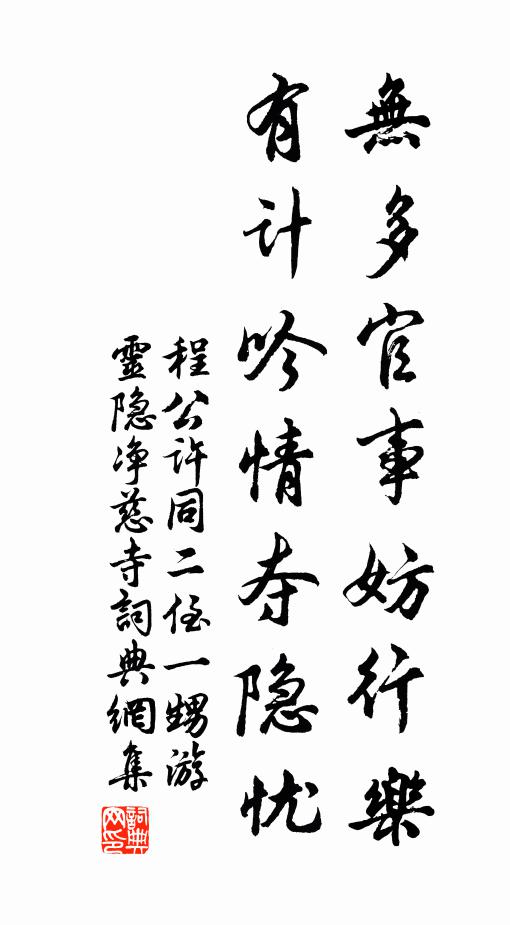 無多官事妨行樂
有计吟情夺隐忧
程公许同二侄一甥游
靈隐净慈寺詞典網集
詞典网印